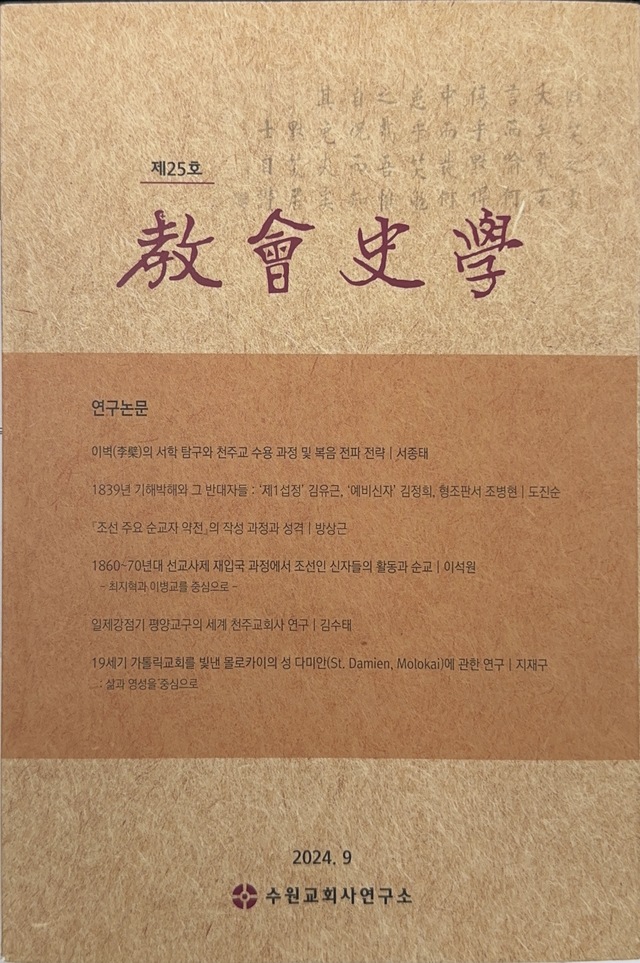 제25호
教會史學
연구논문
이벽(李檗)의 서학 탐구와 천주교 수용 과정 및 복음 전파 전략 | 서종태
1839년 기해박해와 그 반대자들 : ‘제1섭정’ 김유근, ‘예비신자’ 김정희, 형조판서 조병현 | 도진순
「조선 주요 순교자 약전」의 작성 과정과 성격 | 방상근
1860~70년대 선교사제 재입국 과정에서 조선인 신자들의 활동과 순교 | 이석원
– 최지혁과 이병교를 중심으로 –
일제강점기 평양교구의 세계 천주교회사 연구 | 김수태
19세기 가톨릭교회를 빛낸 몰로카이의 성 다미안(St. Damien, Molokai)에 관한 연구 | 지재구
: 삶과 영성을 중심으로
2024. 9
수원교회사연구소